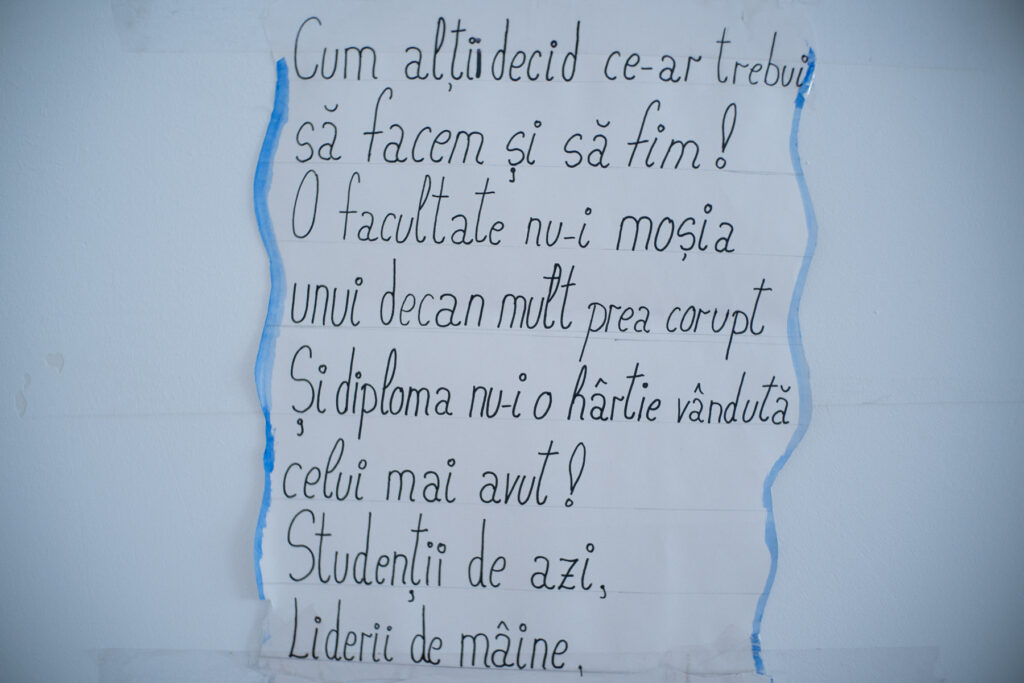 Cum alții decid ce-ar trebui
să facem și să fim!
O facultate nu-i moșia
unui decan mult prea corupt
Și diploma nu-i o hârtie vândută
celui mai avut!
Studenții de azi,
Liderii de mâine,